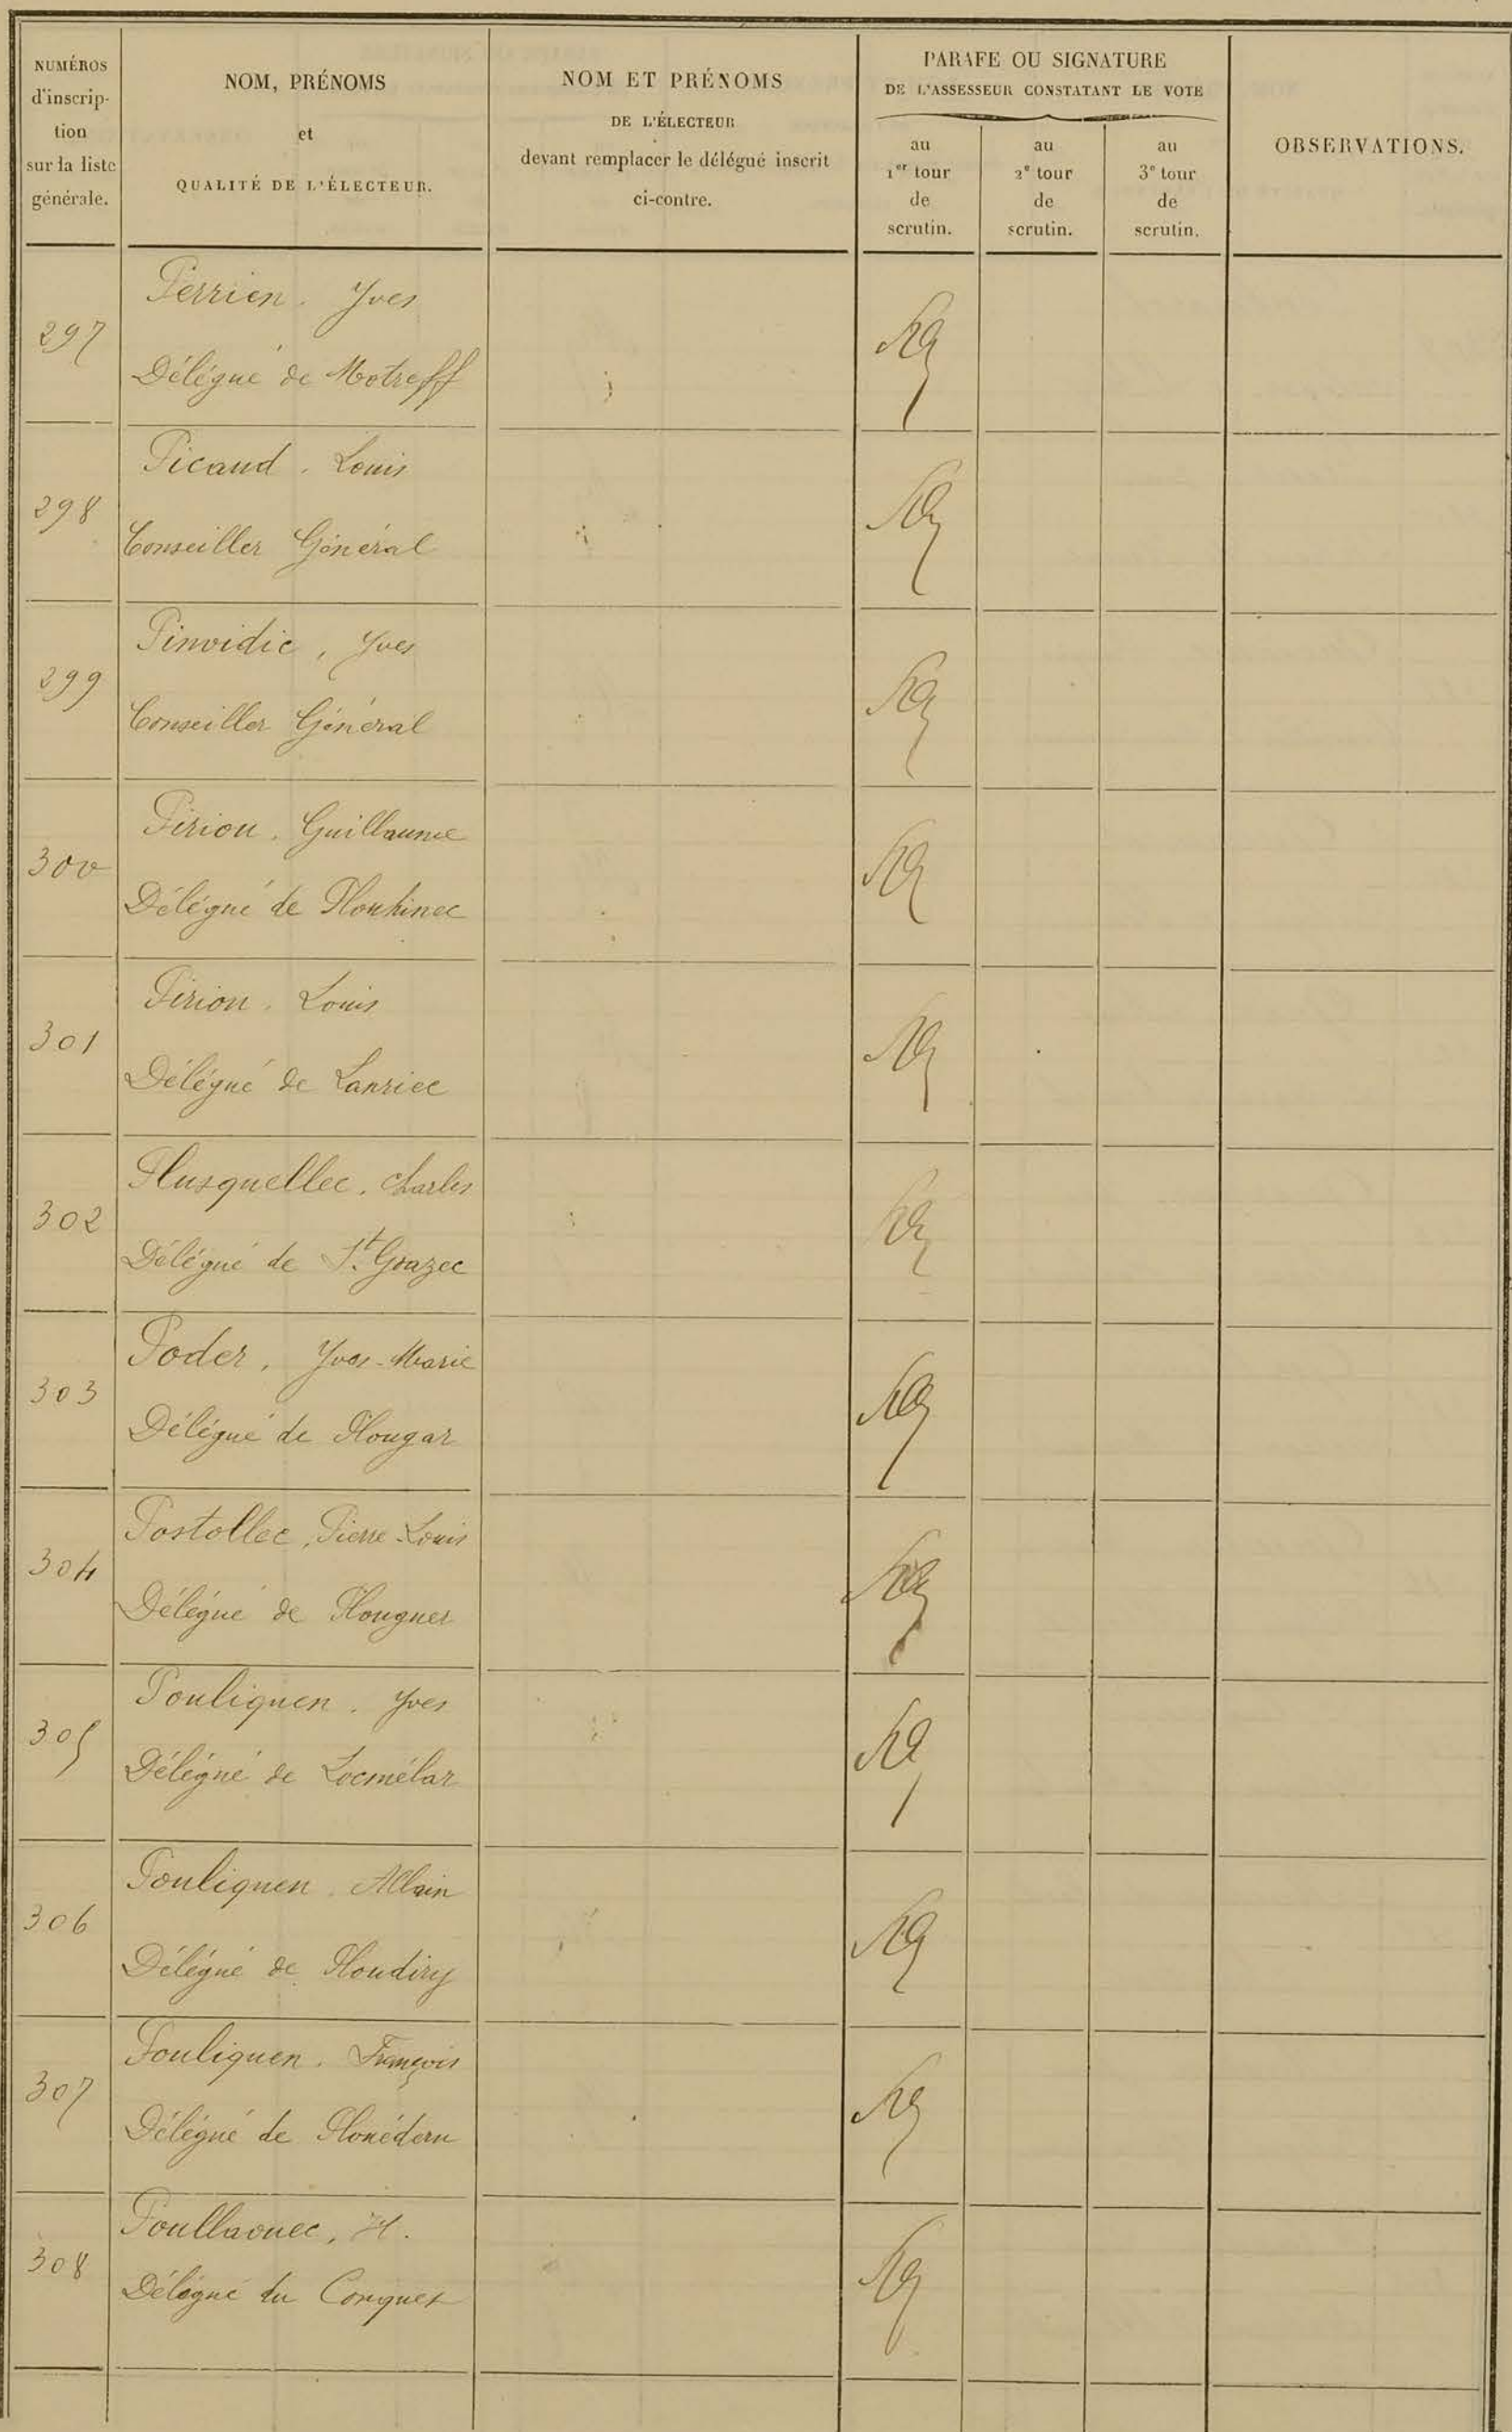 NUMÉROS
d'inscrip-
tion
sur la liste
générale.
NOM, PRÉNOMS
et
QUALITÉ DE L'ÉLECTEUR.
NOM ET PRÉNOMS
DE L'ÉLECTEUR
devant remplacer le délégué inscrit
ci-contre.
PARAFE OU SIGNATURE
DE L'ASSESSEUR CONSTATANT LE VOTE
au
1er tour
de
scrutin.
au
2e tour
de
scrutin.
au
3e tour
de
scrutin.
OBSERVATIONS.
297
Perrien. Yves
Délégué de Motreff
298
Picaud. Louis
Conseiller Général
299
Pinvidic, Yves
Conseiller Général
300
Piriou. Guillaume
Délégué de Plouhinec
301
Piriou. Louis
Délégué de Lanriec
302
Plusquellec. Charles
Délégué de St. Goazec
303
Poder, Yves-Marie
Délégué de Plougar
304
Postollec, Pierre-Louis
Délégué de Plouguer
305
Pouliquen. Yves
Délégué de Locmélar
306
Pouliquen. Allain
Délégué de Ploudiry
307
Pouliquen. François
Délégué de Plouédern
308
Poullaouec, H.
Délégué du Conquet